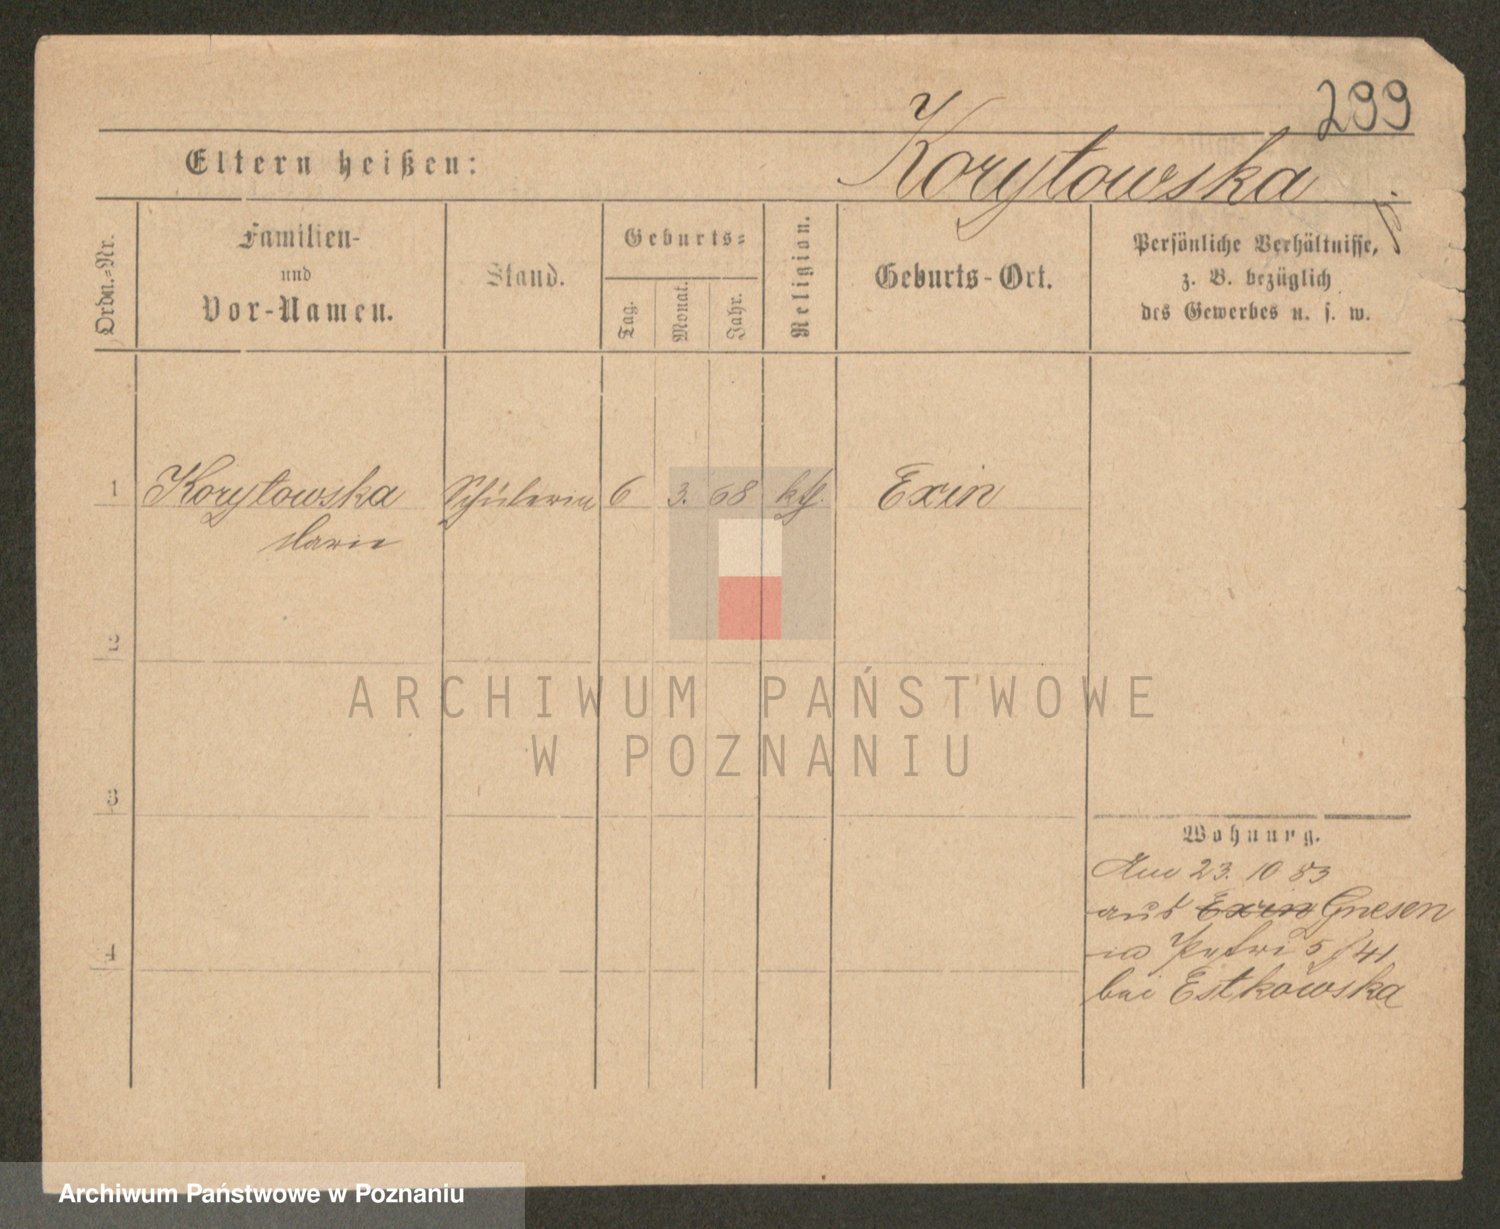 299
Eltern heißen:
Korytowska
Ordn.-Nr.
Familien-
und
Vor-Namen.
Stand.
Geburts-
Tag.
Monat.
Jahr.
Religion.
Geburts-Ort.
Persönliche Verhältnisse,
z. B. bezüglich
des Gewerbes u. s. w.
1 Korytowska Schülerin 6 3. 68 kth. Exin
2
3
4
Wohnung.
23. 10 83
aus Exin Gnesen
in Petri 5 41
bei Estkowska
ARCHIWUM PAŃSTWOWE
W POZNANIU
Archiwum Państwowe w Poznaniu